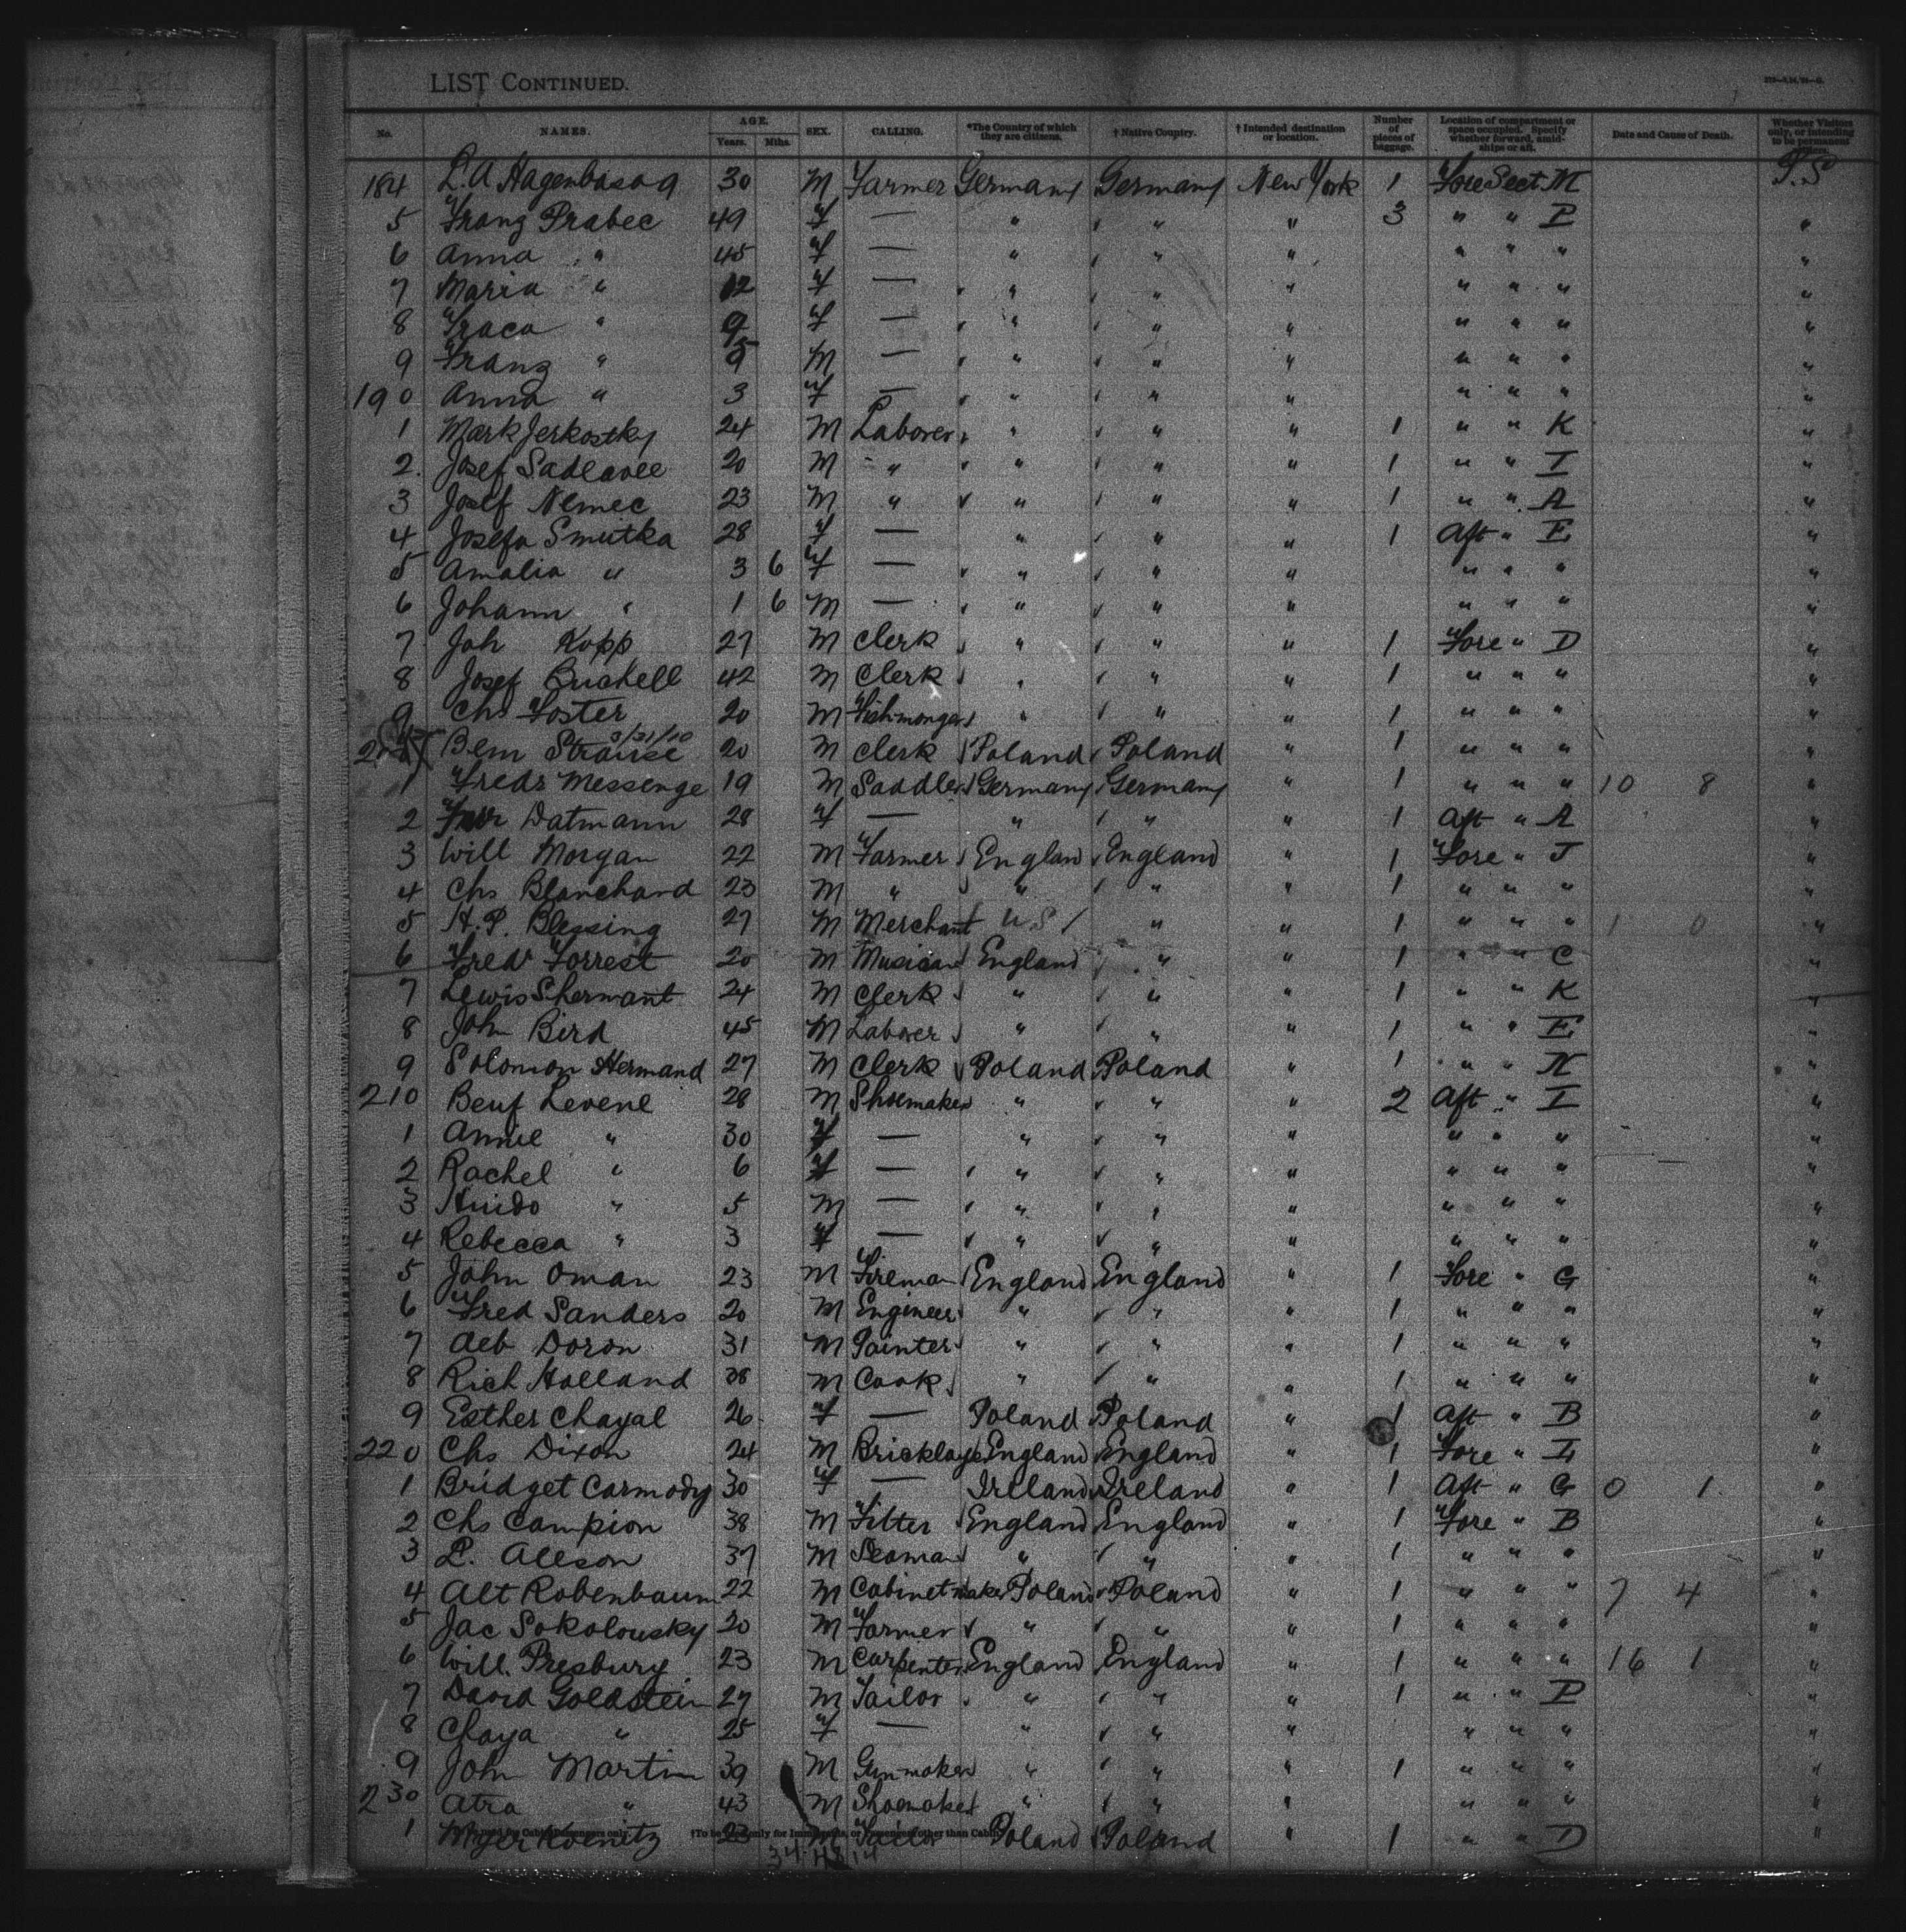 LIST CONTINUED.
No. NAMES. AGE. Years. Mths. SEX. CALLING. *The Country of which they are citizens. † Native Country. † Intended destination or location. Number of pieces of baggage. Location of compartment or space occupied. Specify whether forward, amidships or aft. Date and Cause of Death. Whether Visitors only, or intending to be permanent
184 L. A 30 M Farmer Germany Germany New York 1 Fore Sect M P.S
5 Franz Prabec 49 f — " " " 3 " " P "
6 Anna " 45 f — " " " " " " "
7 Maria " 12 f — " " " " " " "
8 " 9 f — " " " " " " "
9 Franz " M — " " " " " " "
190 Anna " 3 f — " " " " " " "
1 Mark Jerkostky 24 M Laborer " " " 1 " " K "
2. Josef 20 M " " " " 1 " " I "
3 Josef Nemec 23 M " " " " 1 " " A "
4 Josefa Smutka 28 f — " " " 1 Aft " E "
5 Amalia " 3 6 f — " " " " " " "
6 Johann " 1 6 M — " " " " " " "
7 Joh Kopp 27 M Clerk " " " 1 Fore " D "
8 Josef Bruckell 42 M Clerk " " " 1 " " " "
9 Chs Foster 20 M Fishmonger " " " 1 " " " "
3/31/10
Bem Strause 20 M Clerk Poland Poland " 1 " " " "
1 Fredr Messenge 19 M Saddler Germany Germany " 1 " " " 10 8 "
2 Datmann 28 f — " " " 1 Aft " A "
3 Will Morgan 22 M Farmer Englan England " 1 Fore " J "
4 Chs Blanchard 23 M " " " " 1 " " " "
5 H. P. Blessing 27 M Merchant U.S " " 1 " " " 1 0 "
6 Fredr Forrest 20 M Musician England " " 1 " " C "
7 Lewis Shermant 24 M Clerk " " " 1 " " K "
8 John Bird 45 M Laborer " " " 1 " " E "
9 Solomon Hermand 27 M Clerk Poland Poland " 1 " " N "
210 Benf Levene 28 M Shoemaker " " " 2 Aft " I "
1 Annie " 30 f — " " " " " " "
2 Rachel " 6 f — " " " " " " "
3 " 5 M — " " " " " " "
4 Rebecca " 3 f — " " " " " " "
5 John Oman 23 M Fireman England England " 1 Fore " G "
6 Fred Sanders 20 M Engineer " " " 1 " " " "
7 Alb Doron 31 M Painter " " " 1 " " " "
8 Rich Holland 38 M Cook " " " 1 " " " "
9 Esther Chayal 26 f — Poland Poland " 1 Aft " B "
220 Chs Dixon 24 M Bricklayer England England " 1 Fore " "
1 Bridget Carmody 30 f — Ireland Ireland " 1 Aft " G 0 1 "
2 Chs Campion 38 M Fitter England England " 1 Fore " B "
3 P. Aleson 37 M Seaman " " " 1 " " " "
4 Alt Robenbaum 22 M Cabinetmaker Poland Poland " 1 " " " 7 4 "
5 Jac Sokolousky 20 M Farmer " " " 1 " " " "
6 Will. Presbury 23 M Carpenter England England " 1 " " " 16 1 "
7 David Goldstein 27 M Tailor " " " 1 " " P "
8 Chaya " 25 f — " " " " " " "
9 John Martin 39 M Gunmaker " " " 1 " " " "
230 Atra " 43 M Shoemaker " " " " " " "
1 Myer Koenitz 23 M Tailor Poland Poland " 1 " " D "
34 48 14